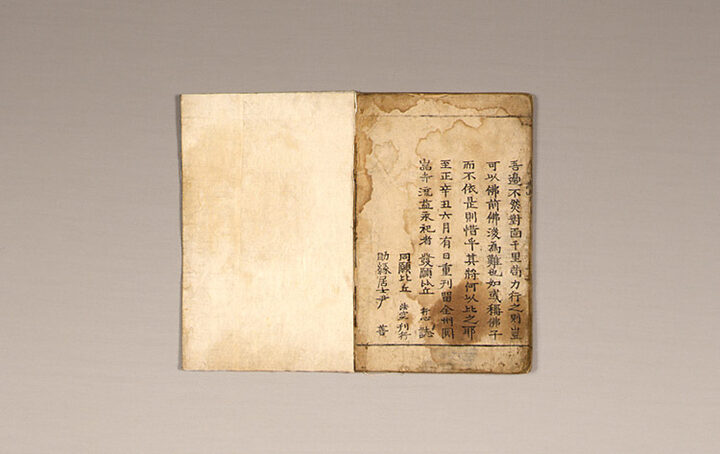 吾邊不然對面千里苟力行之則豈
可以佛前佛後為難也如或稱佛子
而不依是則惜乎其將何以比之耶
至正辛丑六月有日重刊留全州圓
嵓寺流益來祀者 發願比丘 誌
同願比丘 刊行
助緣居士尹 善